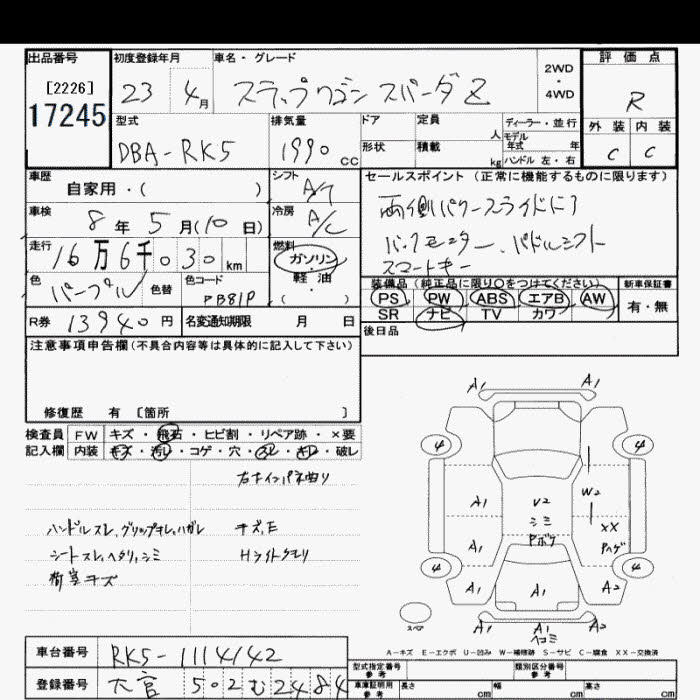 出品番号 初度登録年月 車名・グレード 評価点
[2226] 23 4月 ステップワゴン スパーダ Z 2WD・4WD R
17245
型式 排気量 ドア 定員 人 ディーラー・並行 外装 内装
DBA-RK5 1990 cc 形状 積載 kg モデル年式 年 ハンドル 左・右 C C
車歴 シフト セールスポイント(正常に機能するものに限ります)
自家用・( ) A/T 両側パワースライドドア
車検 冷房 バックモニター、パドルシフト
8年 5月(10日) A/C スマートキー
走行 16万6千030km 燃料 ガソリン・軽油・( )
色 パープル 色替 色コード PB81P
装備品(純正品に限り○をつけてください) 新車保証書
PS PW ABS エアB AW 有・無
SR ナビ TV カワ
R券 13940円 名変通知期限 月 日 後日品
注意事項申告欄(不具合内容等は具体的に記入して下さい)
修復歴 有 [箇所 ]
検査員 FW キズ・飛石・ヒビ割・リペア跡・×要
記入欄 内装 キズ・汚レ・コゲ・穴・スレ・キレ・破レ
右インパネ曲り
ハンドルスレ、グリップキレ、ハガレ キズ、E
シートスレ、ヘタリ、シミ Hライトクモリ
荷室キズ
A1 A1
4 4
A1 U2 W2
シミ XX
A1 Pボケ Pハゲ
4 4
A1 A1 A2
スペア A1 A1 A2
ヘコミ
A-キズ E-エクボ U-凹み W-補修跡 S-サビ C-腐食 XX-交換済
車台番号 RK5-1114142
型式指定番号 参考 類別区分番号 参考
登録番号 大宮 502む2484
車庫証明用 参考 長さ cm 幅 cm 高さ cm